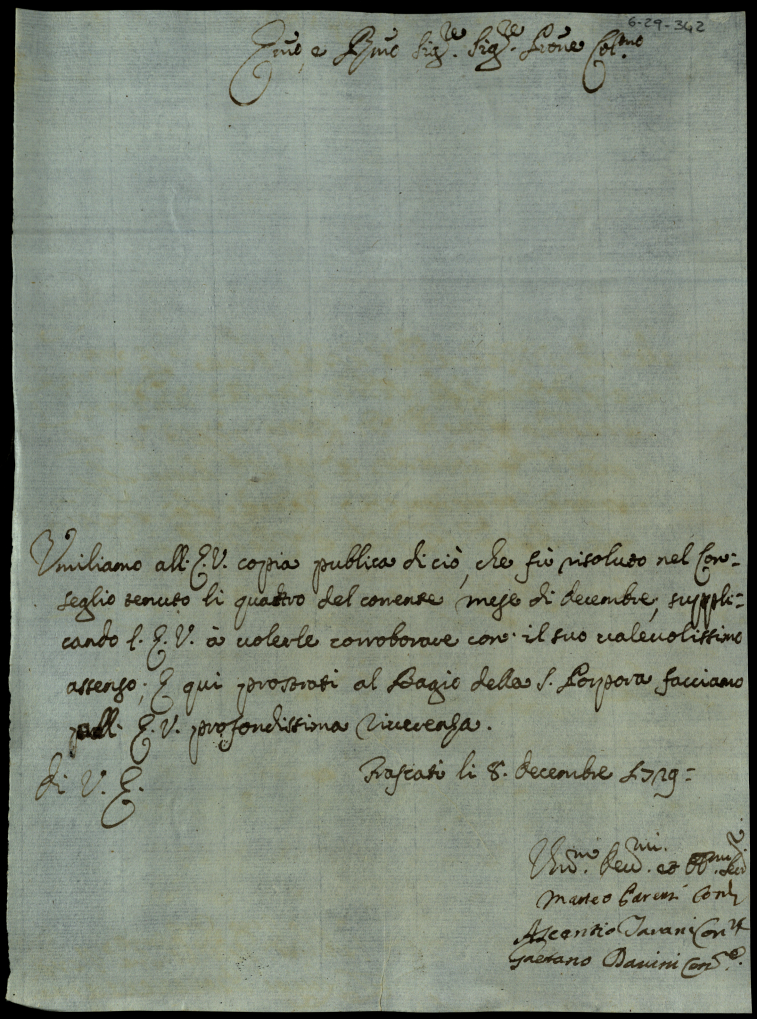 6-29-342
Emo, e Rmo Sig.re Sig.re Prone Col.mo
Umiliamo all'E.V. copia publica di ciò, che fù risoluto nel Con=
seglio tenuto li quattro del corrente mese di decembre, suppli=
cando l'E.V. à volerle corroborare con il suo valevolissimo
assenso; E qui prostrati al Bagio della S. Porpora facciamo
all'E.V. profondissima riverenza.
di V. E.
Frascati li 8. decembre 1729=
Um.mi Dev.mi et Obb.mi Ser.
Matteo
Ascentio Tavani Con.re
Gaetano Con.re